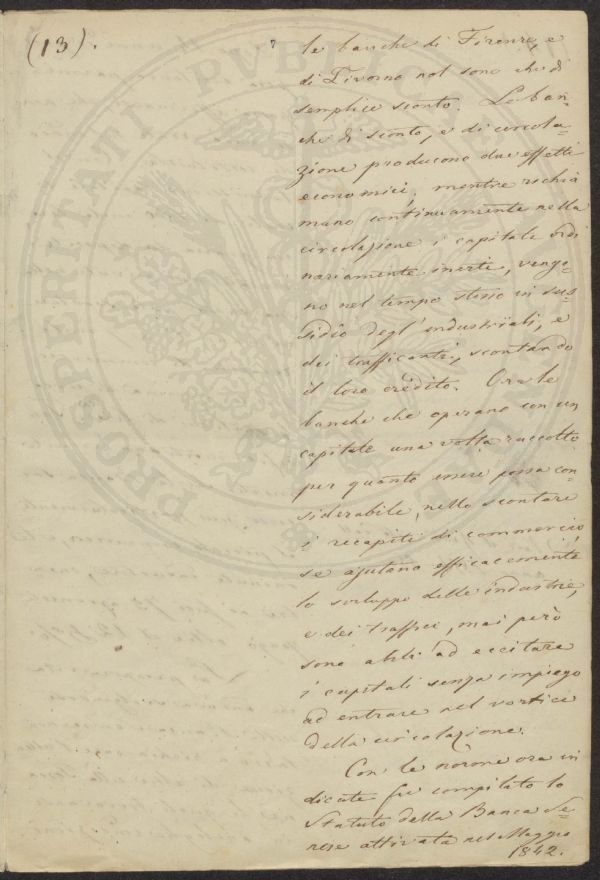 (13).
le banche di Firenze, e
di Livorno nol sono che di
semplice sconto. Le ban-
che di sconto, e di circola-
zione producono due effetti
economici, mentre richia
mano continuamente nella
circolazione i capitali ordi
nariamente inerti, vengo-
no nel tempo stesso in sus-
sidio degl'industriali, e
dei trafficanti, scontando
il loro credito. Ora le
banche che operano con un
capitale una volta raccolto
per quanto esser possa con-
siderabile, nello scontare
i recapiti di commercio,
se ajutano efficacemente
lo sviluppo delle industrie,
e dei traffici, mai però
sono abili ad eccitare
i capitali senza impiego
ad entrare nel vortice
della circolazione.
Con le norme ora in
dicate fu compilato lo
Statuto della Banca Se-
nese attivata nel Maggio
1842.
PROSPERITATI PVBLIC